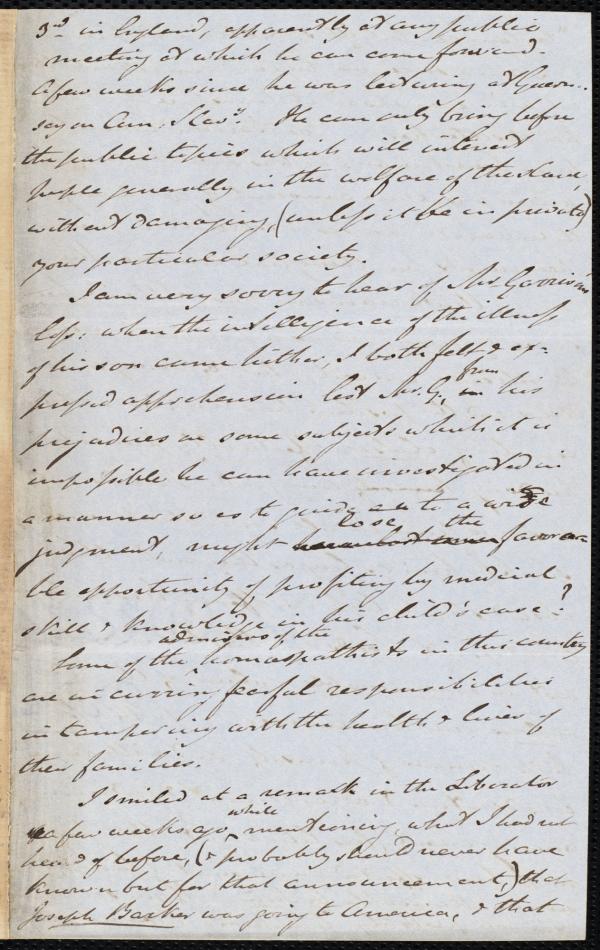 3rd in England, apparently at any public
meeting at which he can come forward.
A few weeks since he was lecturing at Guern-
sey on Am. Slavy. He can only bring before
the public topics which will interest
people generally in the welfare of the slave,
without damaging, (unless it be in private)
your particular society.
I am very sorry to hear of Mr. Garrison's
loss; when the intelligence of the illness
of his son came hither, I both felt & ex-
pressed apprehension lest Mr. G., from his
prejudices on some subjects which it is
impossible he can have investigated in
a manner so as to guide to a wise
judgment, might lose the favora-
ble opportunity of profiting by medical
skill & knowledge in his child's case?
Some of the admirers of the homœopathists in this country
are incurring fearful responsibilities
in tampering with the health & lives of
their families.
I smiled at a remark in the Liberator
a few weeks ago, while mentioning, what I had not
heard of before, (& probably should never have
known but for that announcement,) that
Joseph Barker was going to America, & that